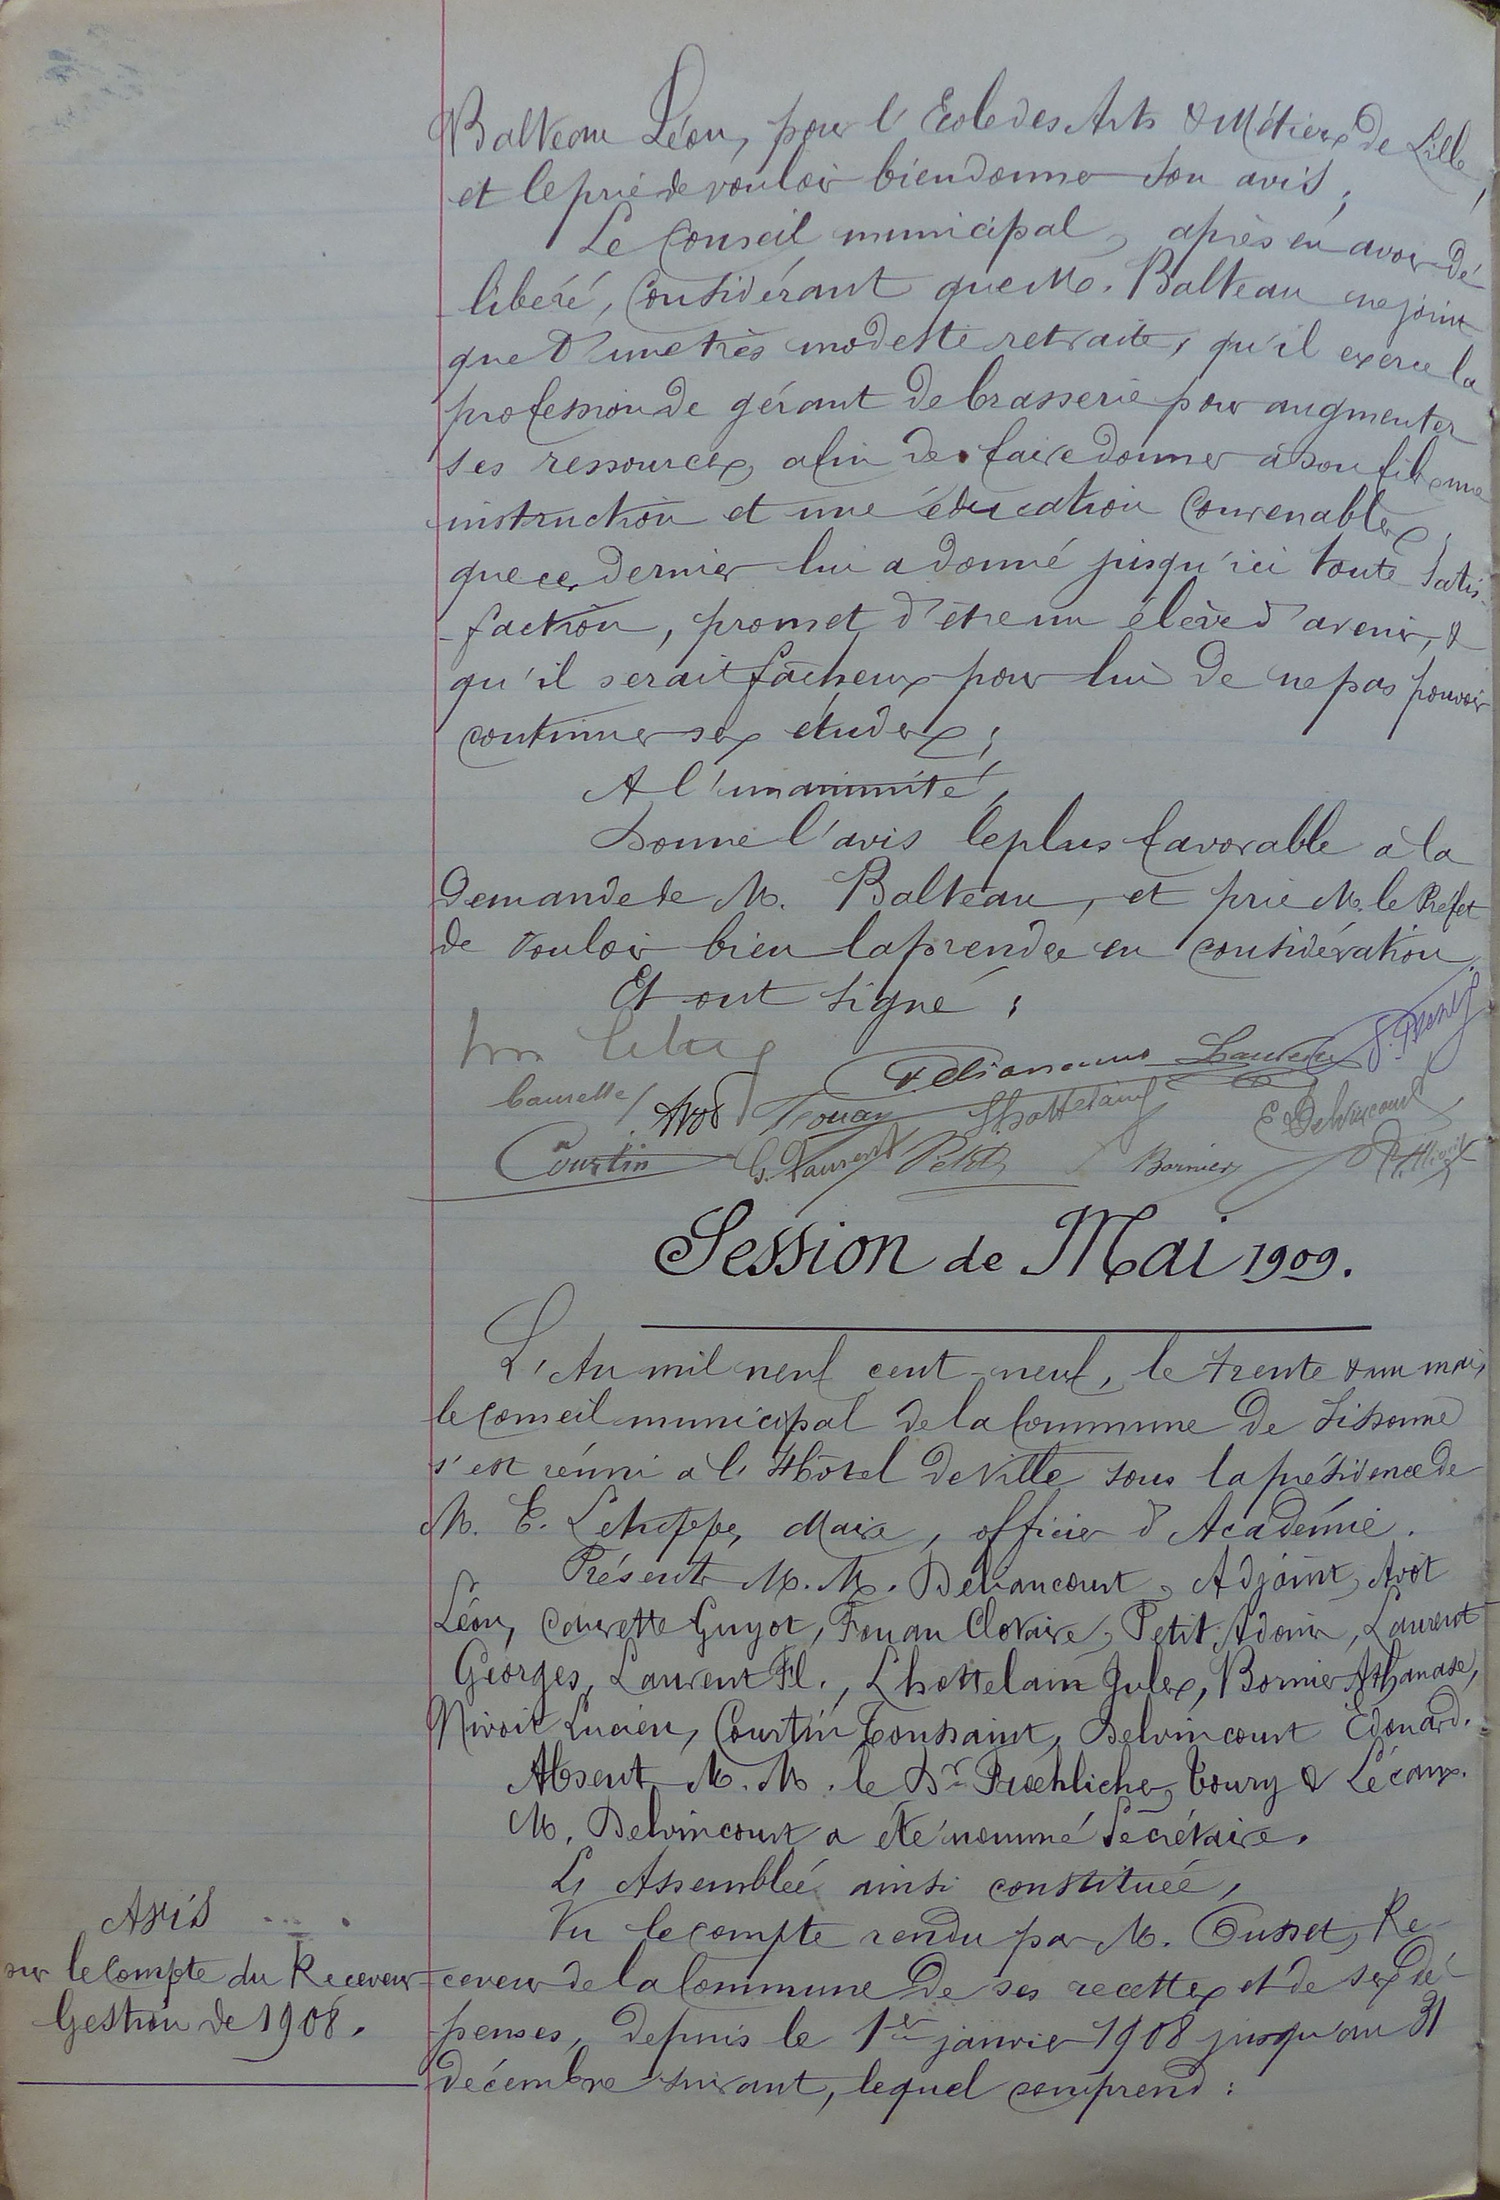 Balteau Léon, pour l'Ecole des Arts & Métiers de Lille,
et le prie de vouloir bien donner son avis;
Le Conseil municipal, après en avoir dé
libéré, Considérant que M. Balteau ne jouit
que d'une très modeste retraite, qu'il exerce la
profession de gérant de brasserie pour augmenter
ses ressources, afin de faire donner à son fils une
instruction et une éducation convenables,
que ce dernier lui a donné jusqu'ici toute satis-
-faction, promet d'être un élève d'avenir, &
qu'il serait fâcheux pour lui de ne pas pouvoir
continuer ses études;
A l'unanimité,
Donne l'avis le plus favorable à la
demande de M. Balteau, et prie M. le Préfet
de vouloir bien la prendre en considération.
Et ont signé:
Courette Avot Fouan Lhottelain E. Delvincourt
Courtin G. Laurent Petit Bornier
Session de Mai 1909.
L'An mil neuf cent neuf, le trente & un mai,
le Conseil municipal de la Commune de Sissonne
s'est réuni à l'Hôtel de Ville sous la présidence de
M. E. Lehoppe, Maire, officier d'Académie.
Présents M.M. Deliancourt, Adjoint, Avot
Léon, Courette Guyot, Fouan Clovaire, Petit Adonis, Laurent
Georges, Laurent Fl., Lhottelain Jules, Bornier Athanase,
Nivoit Lucien, Courtin Toussaint, Delvincourt Edouard.
Absents M.M. le Dr Froehlicher, Coury & Lécaux.
M. Delvincourt a été nommé Secrétaire.
L'Assemblée ainsi constituée,
Avis
sur le Compte du Receveur
Gestion de 1908.
Vu le compte rendu par M. Cusset, Re-
ceveur de la Commune de ses recettes et de ses dé-
penses, depuis le 1er janvier 1908 jusqu'au 31
décembre suivant, lequel comprend: